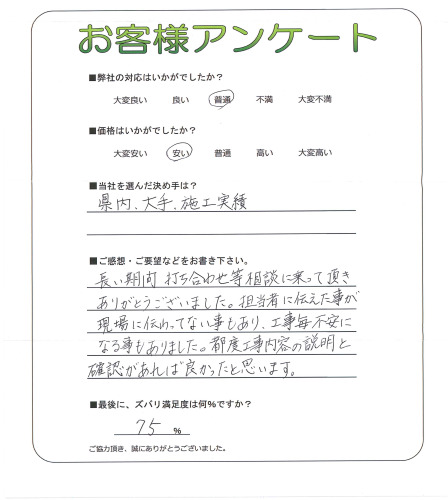 お客様アンケート
■弊社の対応はいかがでしたか？
大変良い 良い 普通 不満 大変不満
■価格はいかがでしたか？
大変安い 安い 普通 高い 大変高い
■当社を選んだ決め手は？
県内、大手、施工実績
■ご感想・ご要望などをお書き下さい。
長い期間 打ち合わせ等相談に来って頂き
ありがとうございました。担当者に伝えた事が
現場に伝わってない事もあり、工事毎不安に
なる事もありました。都度工事内容の説明と
確認があれば良かったと思います。
■最後に、ズバリ満足度は何％ですか？
75 ％
ご協力頂き、誠にありがとうございました。